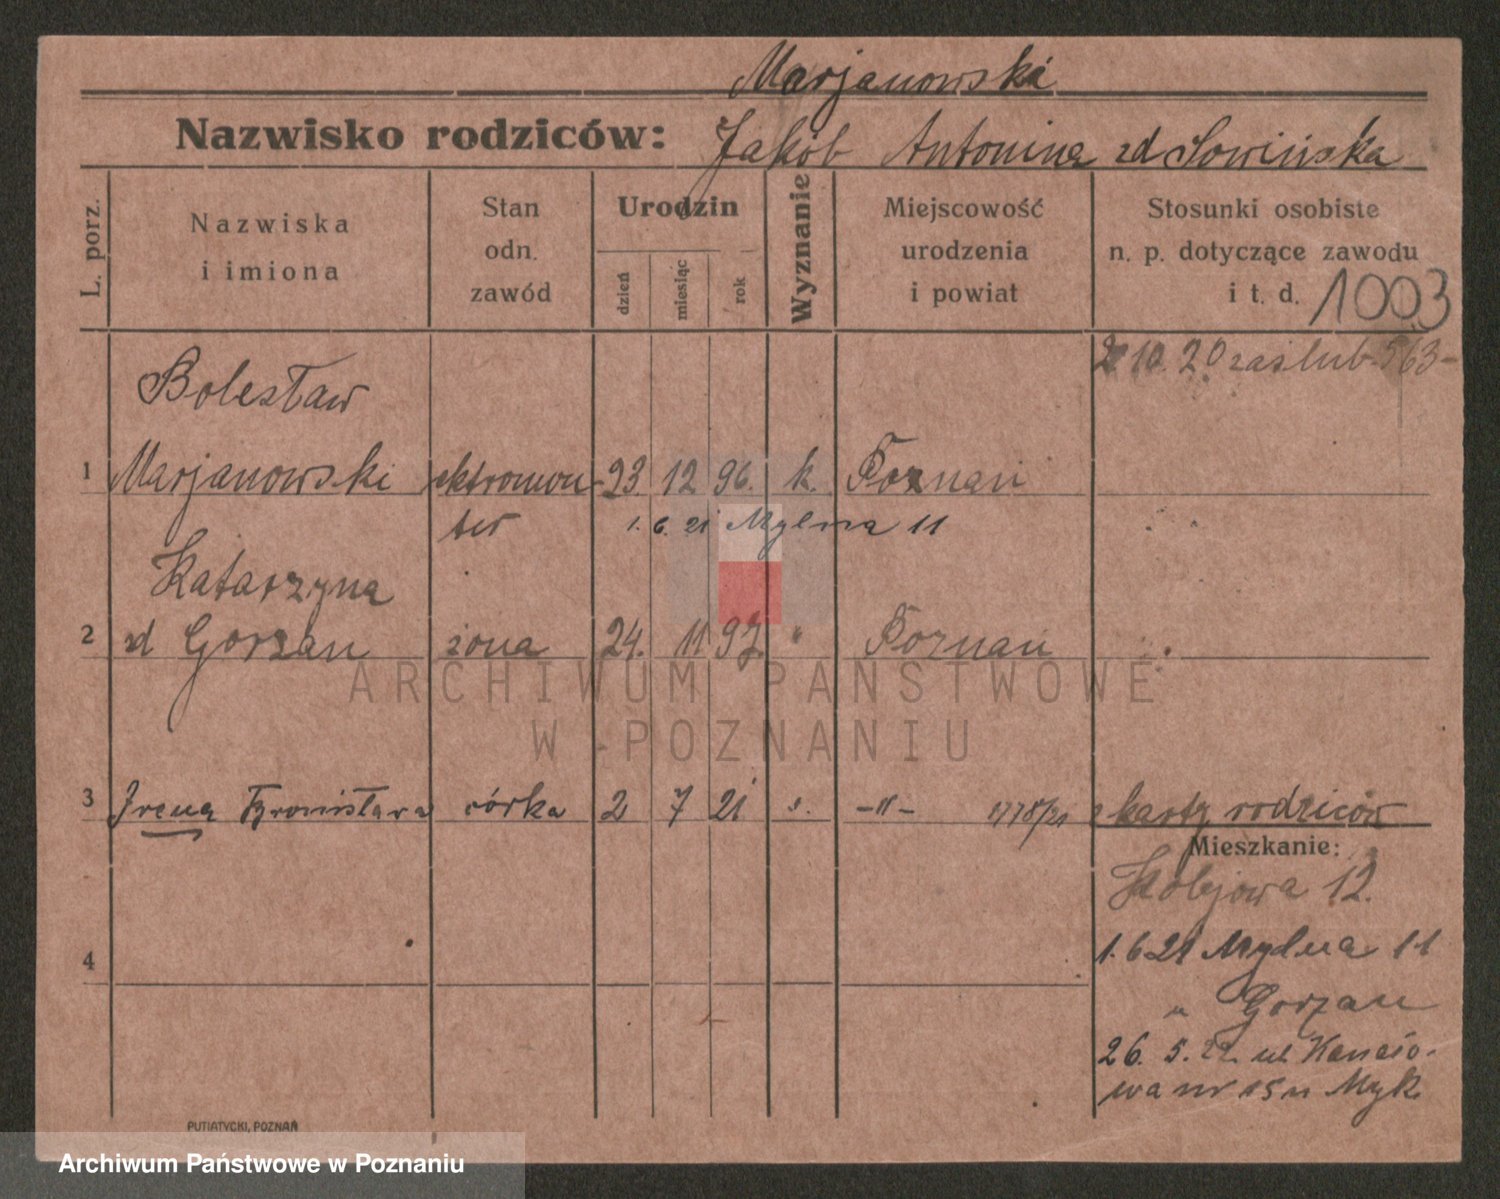 Marjanowski
Nazwisko rodziców: Jakób Antonina zd Sowińska
L. porz.
Nazwiska i imiona
Stan odn. zawód
Urodzin
dzień miesiąc rok
Wyznanie
Miejscowość urodzenia i powiat
Stosunki osobiste n. p. dotyczące zawodu i t. d. 1003
2 10. 20 zaślub. 563-
Bolesław
1 Marjanowski ektromon- 23. 12 96. k. Poznań
ter 1. 6. 21 Mylna 11
Katarzyna
2 zd Gorzan żona 24. 11 97. " Poznań
ARCHIWUM PAŃSTWOWE
W POZNANIU
3 Irena Bronisława córka 2 7 21 -"- z karty rodziców
Mieszkanie:
Kolejowa 12.
4 1. 6 21 Mylna 11
" Gorzan
26. 5. 22 ul Kanało-
wa nr 15 u Myk.
PUTIATYCKI, POZNAŃ
Archiwum Państwowe w Poznaniu